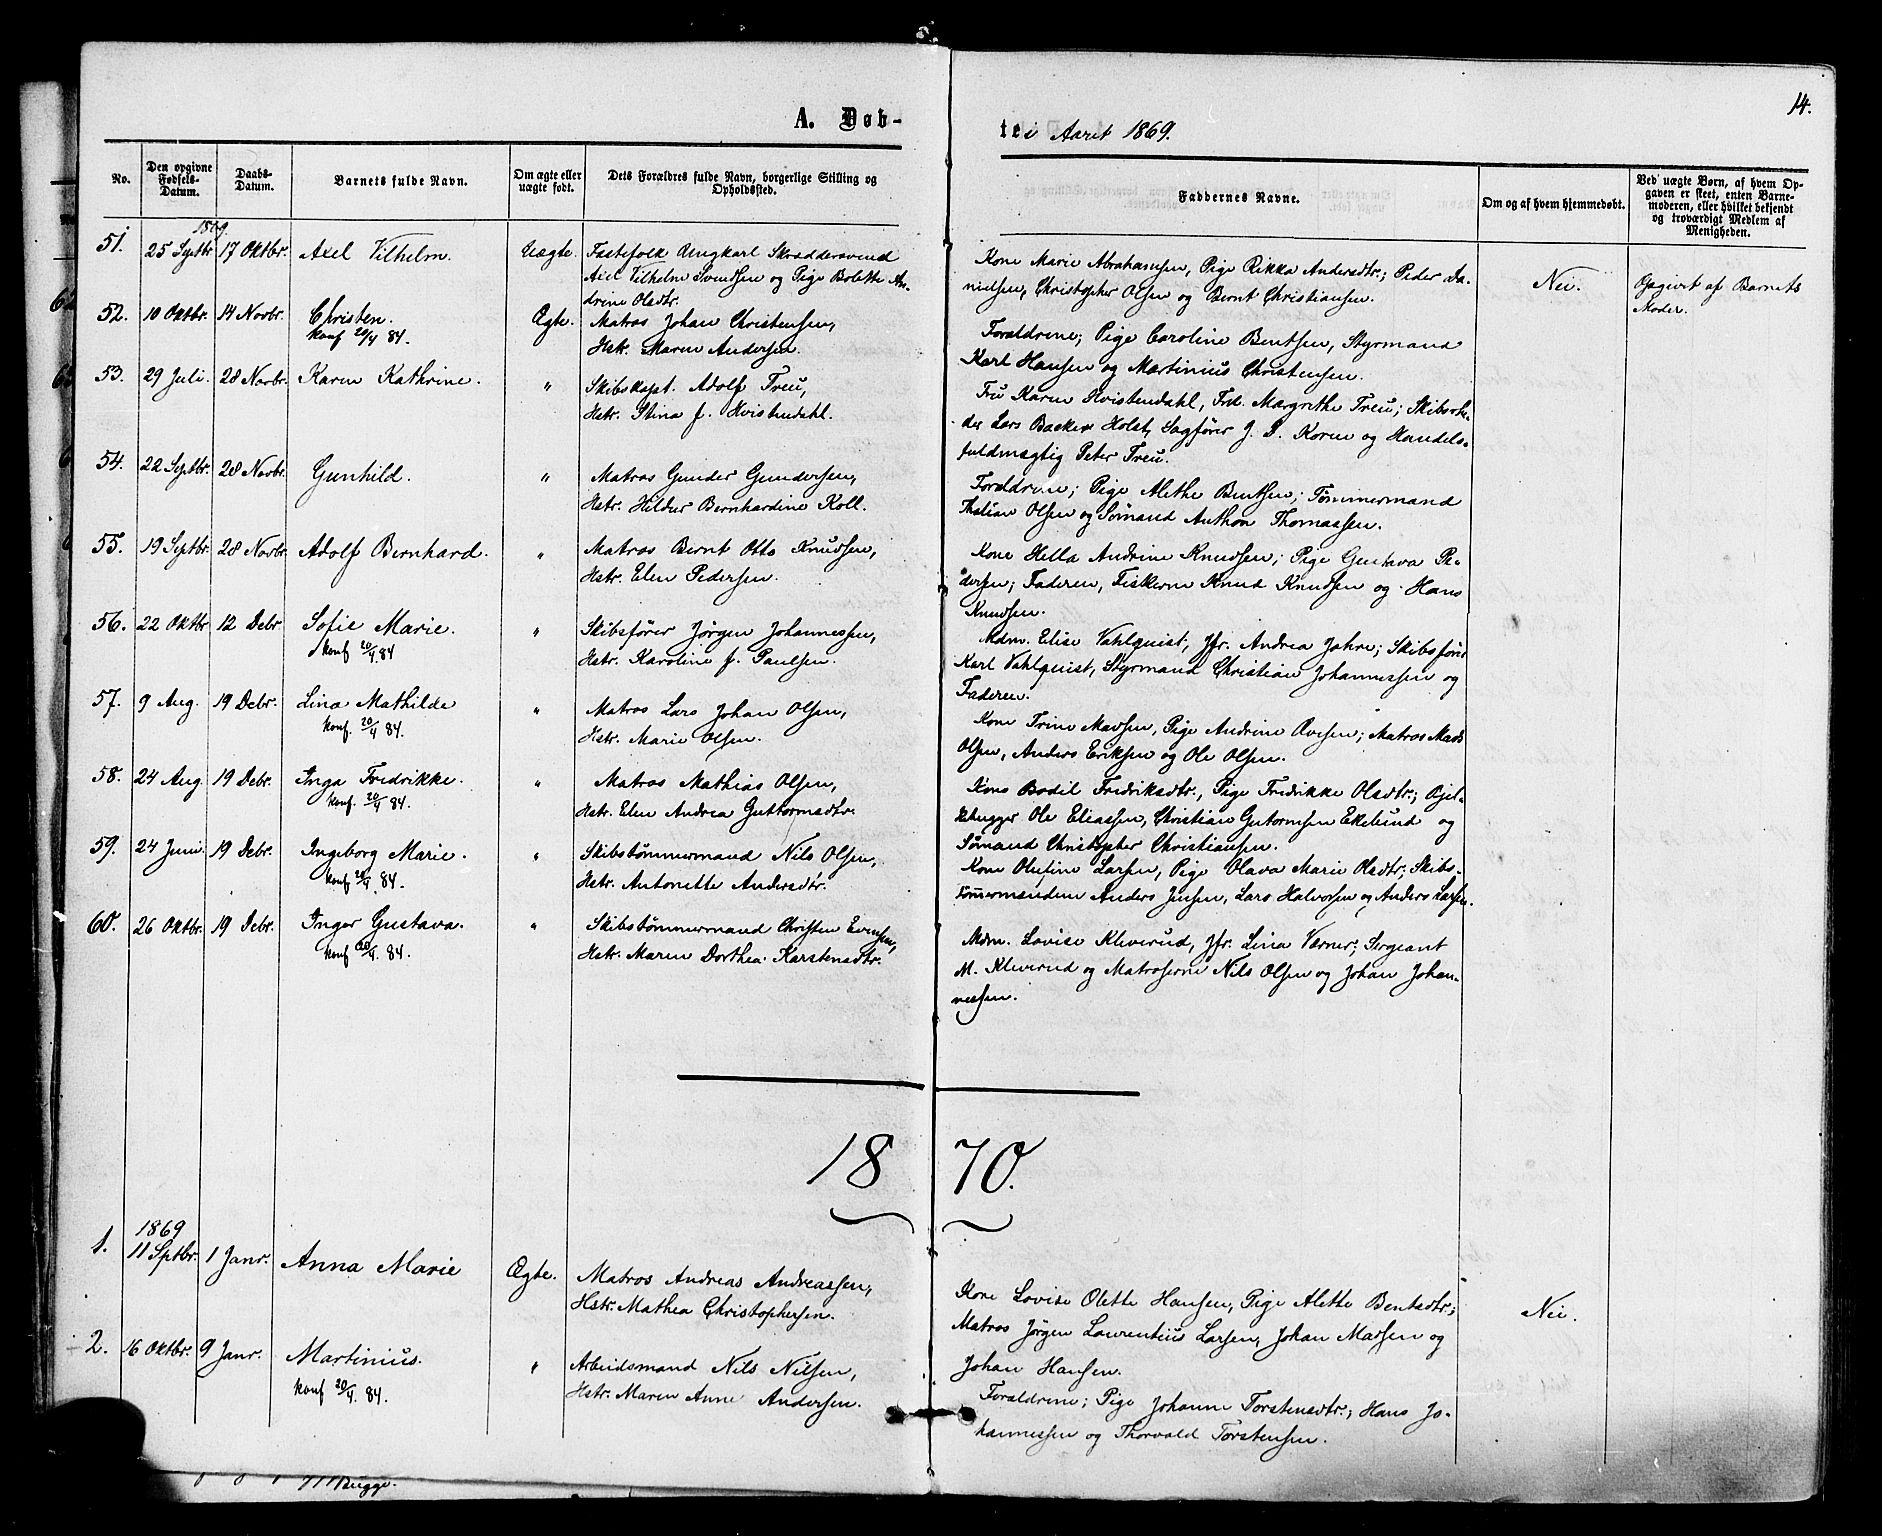 14.
A. Døb-
te i Aaret 1869.
No.
Den opgivne Fødsels-Datum.
Daabs-Datum.
Barnets fulde Navn.
Om ægte eller uægte født.
Dets Forældres fulde Navn, borgerlige Stilling og Opholdssted.
Faddernes Navne.
Om og af hvem hjemmedøbt.
Ved uægte Børn, af hvem Opgaven er skeet, enten Barnemoderen, eller hvilket bekjendt og troværdigt Medlem af Menigheden.
1869
51. 25 Septbr. 17 Oktbr. Axel Vilhelm. Uægte.
Fastefolk Ungkarl Skræddersvend
Axel Vilhelm Svendsen og Pige Bolette An-
drine Olsdtr.
Kone Marie Abrahamsen, Pige Rikka Andersdtr.; Peder Da-
nielsen, Christopher Olsen og Bernt Christiansen.
Nei.
Opgivet af Barnets
Moder.
52. 10 Oktbr. 14 Novbr. Christen. Ægte.
konf 20/4 84.
Matros Johan Christensen,
Hstr. Maren Andersen.
Forældrene; Pige Caroline Bentsen, Styrmand
Karl Hansen og Martinius Christensen.
53. 29 Juli. 28 Novbr. Karen Kathrine. "
Skibskapt. Adolf Treu,
Hstr. Stina f. Hvistendahl.
Fru Karen Hvistendahl, Frk. Margrethe Treu; Skibsrhe-
der Lars Backer Holst, Sagfører J. P. Koren og Handels-
fuldmægtig Peter Treu.
54. 22 Septbr. 28 Novbr. Gunhild. "
Matros Gunder Gundersen,
Hstr. Hildur Bernhardine Koll.
Forældrene; Pige Alethe Bentsen; Tømmermand
Olsen og Sømand Anthon Thomassen.
55. 19 Septbr. 28 Novbr. Adolf Bernhard. "
Matros Bernt Otto Knudsen,
Hstr. Elen Pedersen.
Kone Hella Andrine Knudsen; Pige Gustava Pe-
dersen; Faderen, Fiskerne Knud Knudsen og Hans
Knudsen.
56. 22 Oktbr 12 Debr Sofie Marie. "
konf 20/4 84
Skibsfører Jørgen Johannessen,
Hstr. Karoline f. Paulsen.
Mdm. Elise Vahlquist, Jfr. Andrea Jahre; Skibsfører
Karl Vahlquist, Styrmand Christian Johannessen og
Faderen.
57. 9 Aug. 19 Debr. Lina Mathilde "
konf. 20/4 84.
Matros Lars Johan Olsen,
Hstr. Marie Olsen.
Kone Trine Madsen, Pige Andrine Ovesen; Matros Mads
Olsen, Anders Eriksen og Ole Olsen.
58. 24 Aug. 19 Debr. Inga Fredrikke. "
konf. 20/4 84.
Matros Mathias Olsen,
Hstr. Elen Andrea Guttormsdtr.
Kone Bodil Fredriksdtr., Pige Fredrikke Olsdtr.; Bjel-
kehugger Ole Eliassen, Christian Gutormsen Ekelund og
Sømand Christopher Christiansen.
59. 24 Juni. 19 Debr. Ingeborg Marie. "
konf 20/4. 84.
Skibstømmermand Nils Olsen,
Hstr. Antonette Andersdtr.
Kone Olufine Larsen, Pige Olava Marie Olsdtr; Skibs-
tømmermændene Anders Jensen, Lars Halvorsen og Anders Larsen.
60. 26 Oktbr. 19 Debr. Inger Gustava. "
konf 20/4. 84.
Skibstømmermand Christen Evensen,
Hstr. Maren Dorthea Karstensdtr.
Mdm. Lovise Kleverud, Jfr. Lina Værner; Sergeant
M. Kleverud og Matroserne Nils Olsen og Johan Johan-
nessen.
1870.
1869
1. 11 Sptbr. 1 Janr. Anna Marie Ægte.
Matros Andreas Andreassen,
Hstr. Mathea Christophersen.
Kone Lovise Olette Hansen, Pige Alette Bentsdtr.;
Matros Jørgen Laurentius Larsen, Johan Madsen og
Johan Hansen.
Nei.
2. 16 Oktbr. 9 Janr. Martinius. "
konf 20/4. 84.
Arbeidsmand Nils Nilsen,
Hstr. Maren Anne Andersen.
Forældrene; Pige Johanne Torstensdtr.; Hans Jo-
hannessen og Thorvald Torstensen.
Bugge.